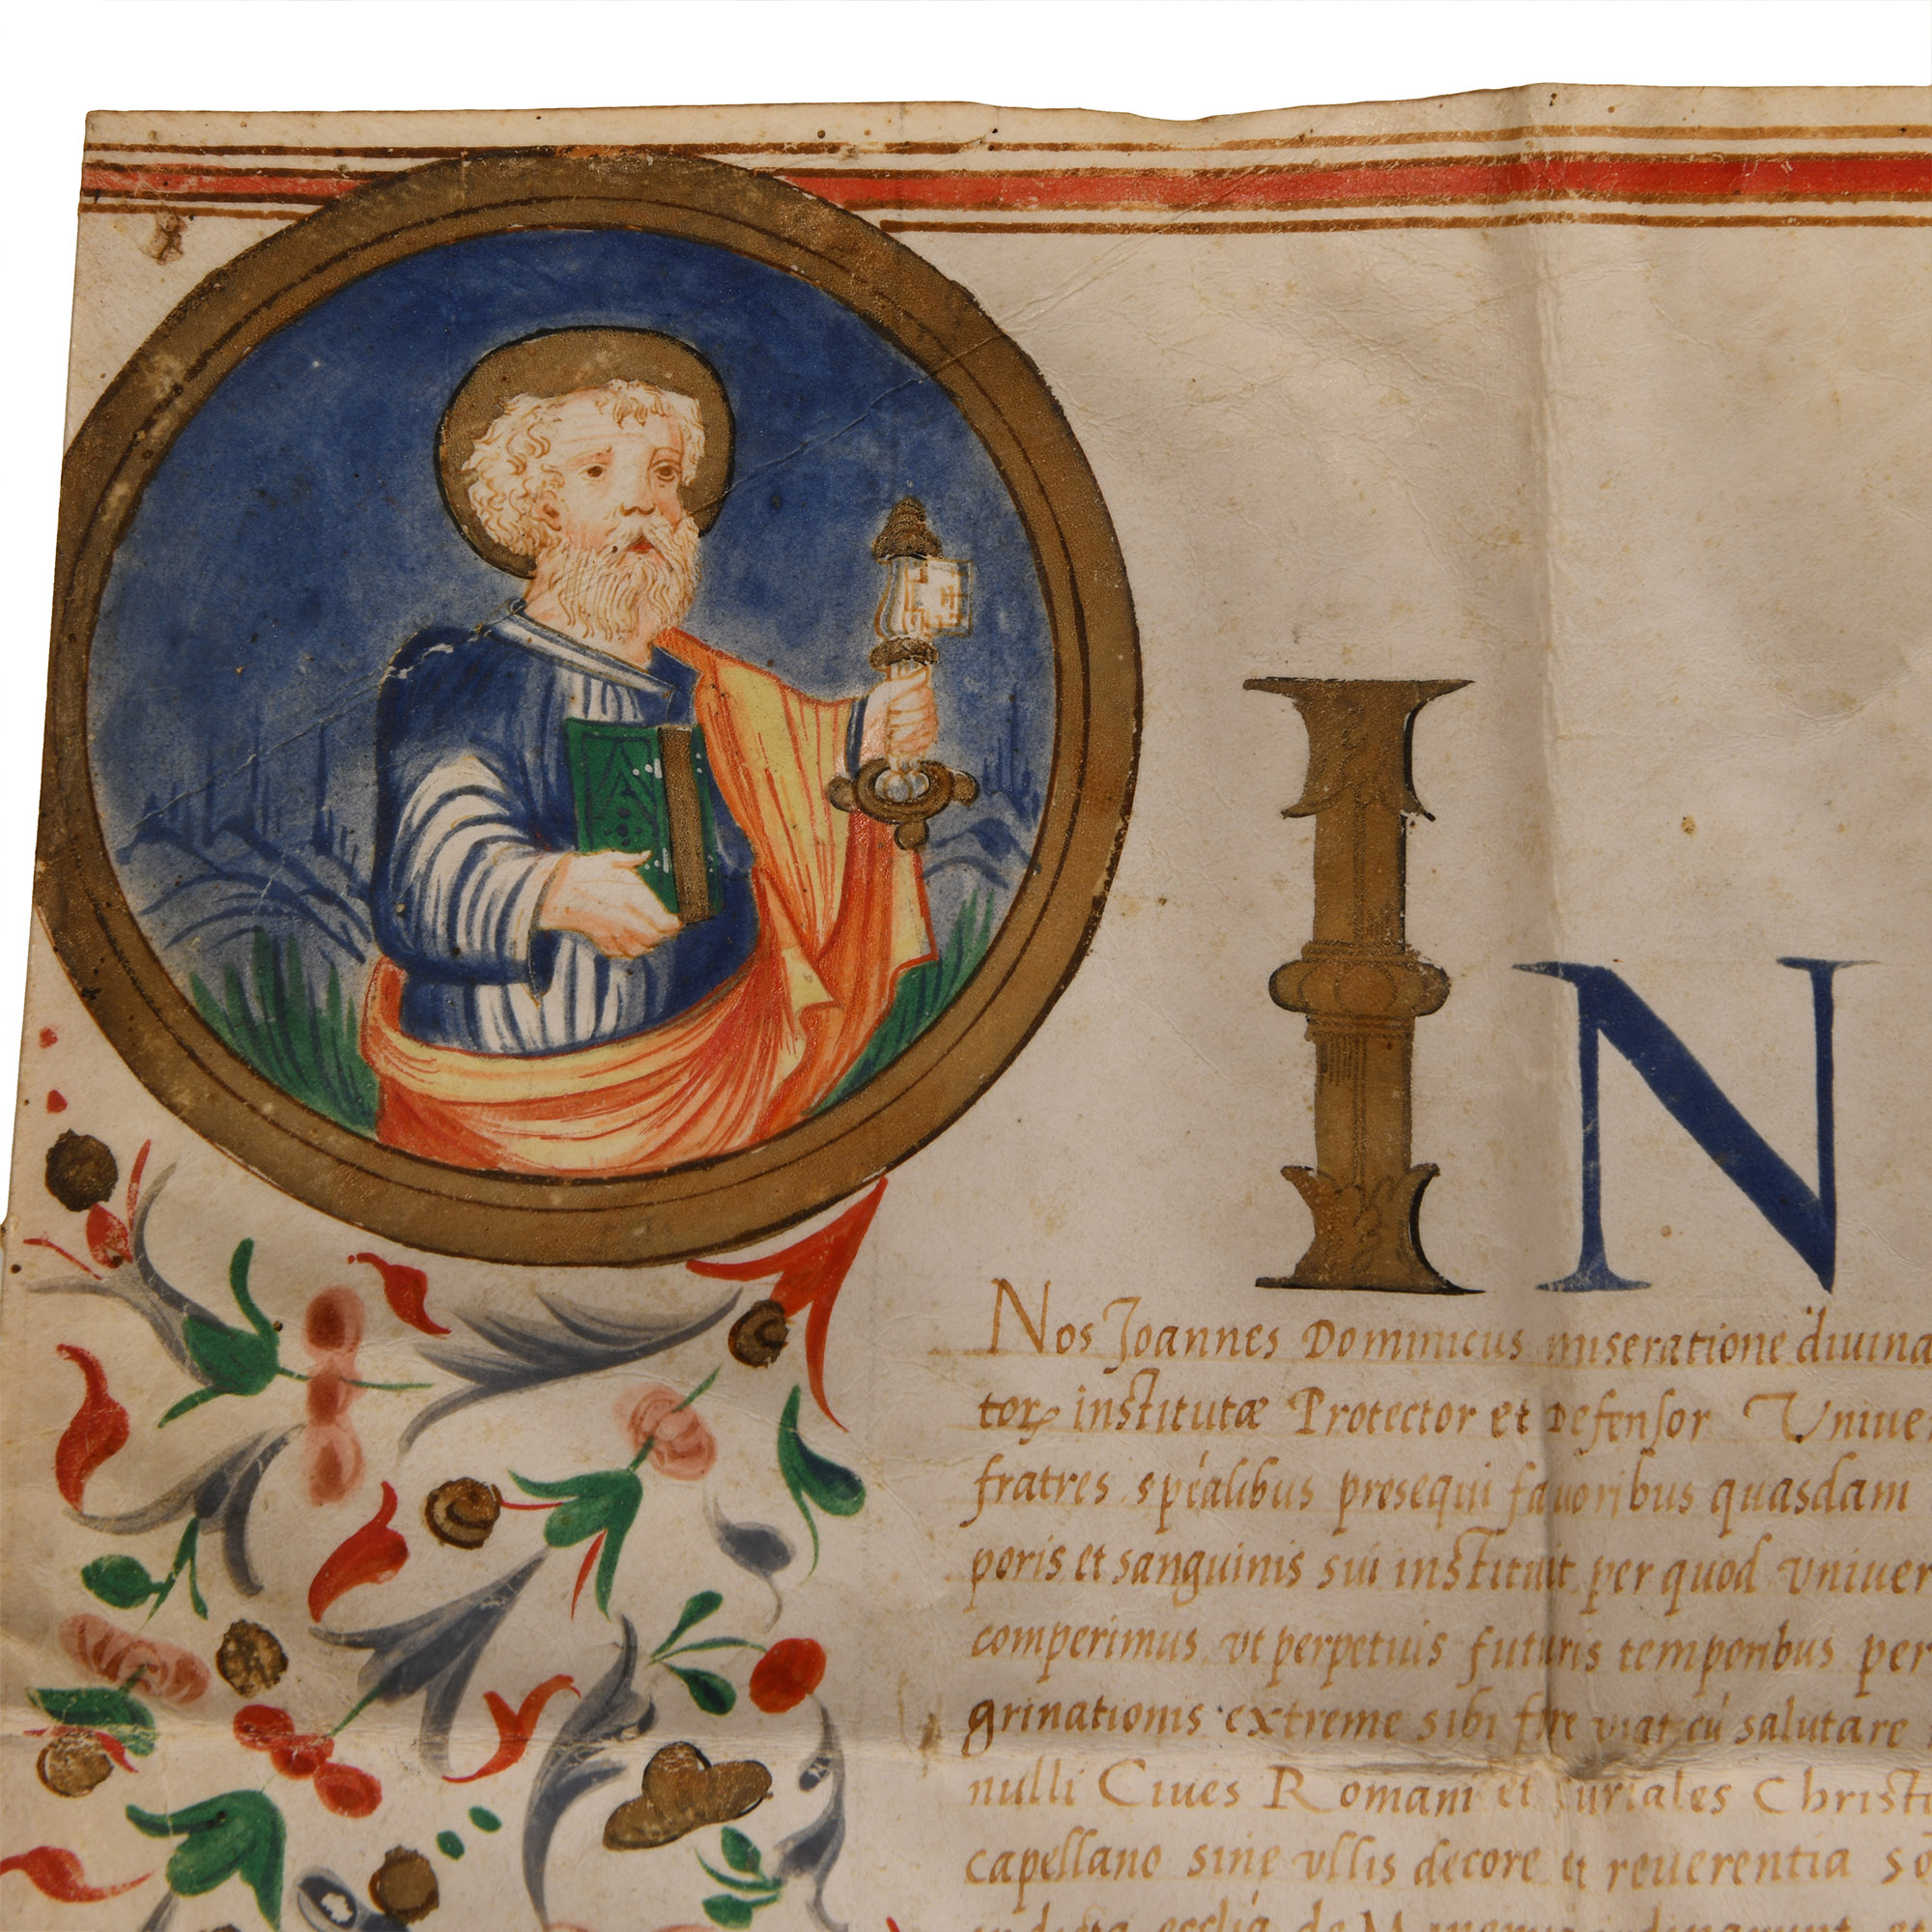 IN
Nos Joannes Dominicus miseratione diuina
toꝝ institutæ Protector et Defensor Uniue
fratres spéalibus presequi fauoribus quasdam
poris et sanguinis sui instituit per quod vniuer
comperimus vt perpetuis futuris temporibus per
grinationis extreme sibi fi̅e̅t viat cú salutare
nulli Ciues Romani et curiales Christi
capellano sine vllis decore et reuerentia so